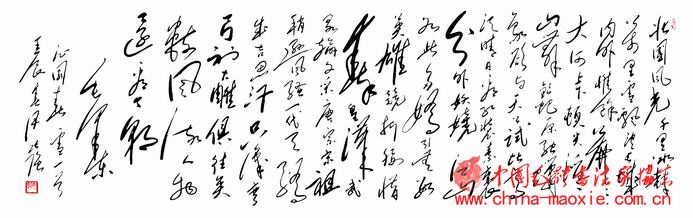 北国风光千里冰封
万里雪飘望长城
内外惟馀莽
大河上下顿失滔滔
山舞银蛇原驰
象欲与天公试比高
须晴日看红装素裹
分外妖娆江山
如此多娇引无数
英雄竞折腰惜
秦皇汉武
略输文采唐宗宋祖
稍逊风骚一代天骄
成吉思汗只识弯
弓射大雕俱往矣
数风流人物
还看今朝
毛泽东
沁园春雪一首
壬辰春月
中国毛体书法
www.china-maoxie.com.cn